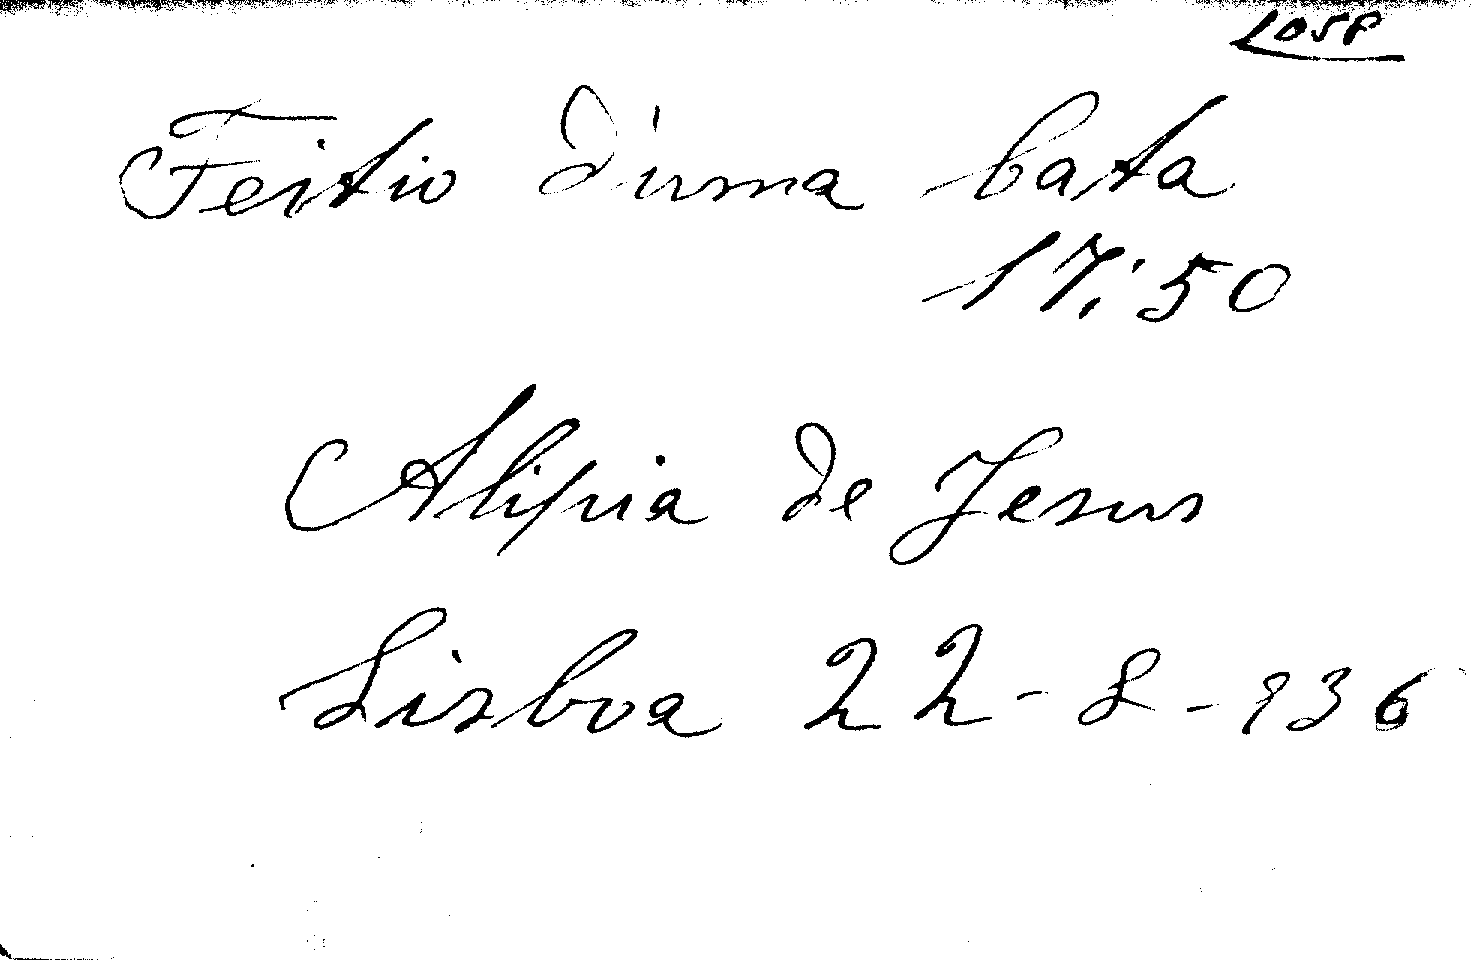 Feitio d'uma bata
17:50
Alipia de Jesus
Lisboa 22-8-936